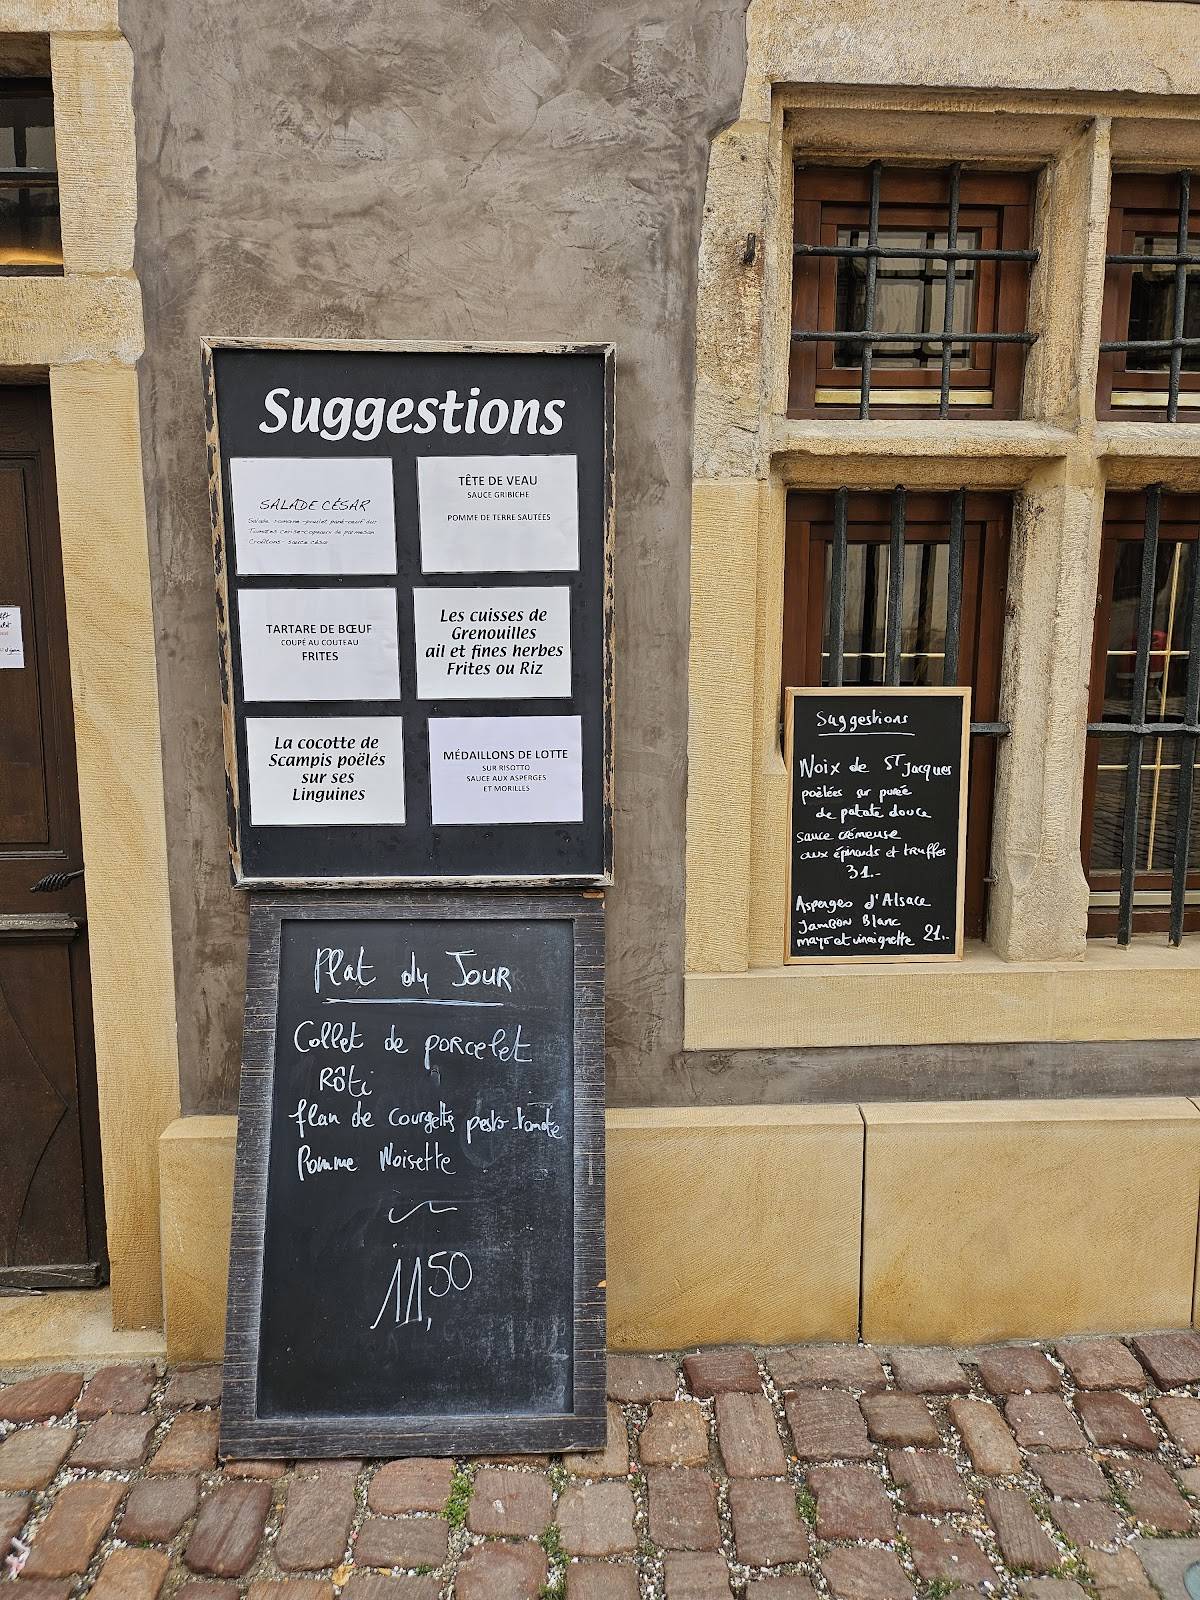 Suggestions
SALADE CÉSAR
Salade romaine-poulet pané-oeuf dur
Tomates cerise-copeaux de parmesan
Croûtons-sauce césar
TÊTE DE VEAU
SAUCE GRIBICHE
POMME DE TERRE SAUTÉES
TARTARE DE BŒUF
COUPÉ AU COUTEAU
FRITES
Les cuisses de
Grenouilles
ail et fines herbes
Frites ou Riz
La cocotte de
Scampis poëlés
sur ses
Linguines
MÉDAILLONS DE LOTTE
SUR RISOTTO
SAUCE AUX ASPERGES
ET MORILLES
Plat du Jour
Collet de porcelet
Rôti
flan de courgettes pesto-tomate
Pomme Noisette
11,50
Suggestions
Noix de ST Jacques
poëlées sur purée
de patate douce
sauce crémeuse
aux épinards et truffes
31.-
Asperges d'Alsace
Jambon Blanc
mayo et vinaigrette 21.-